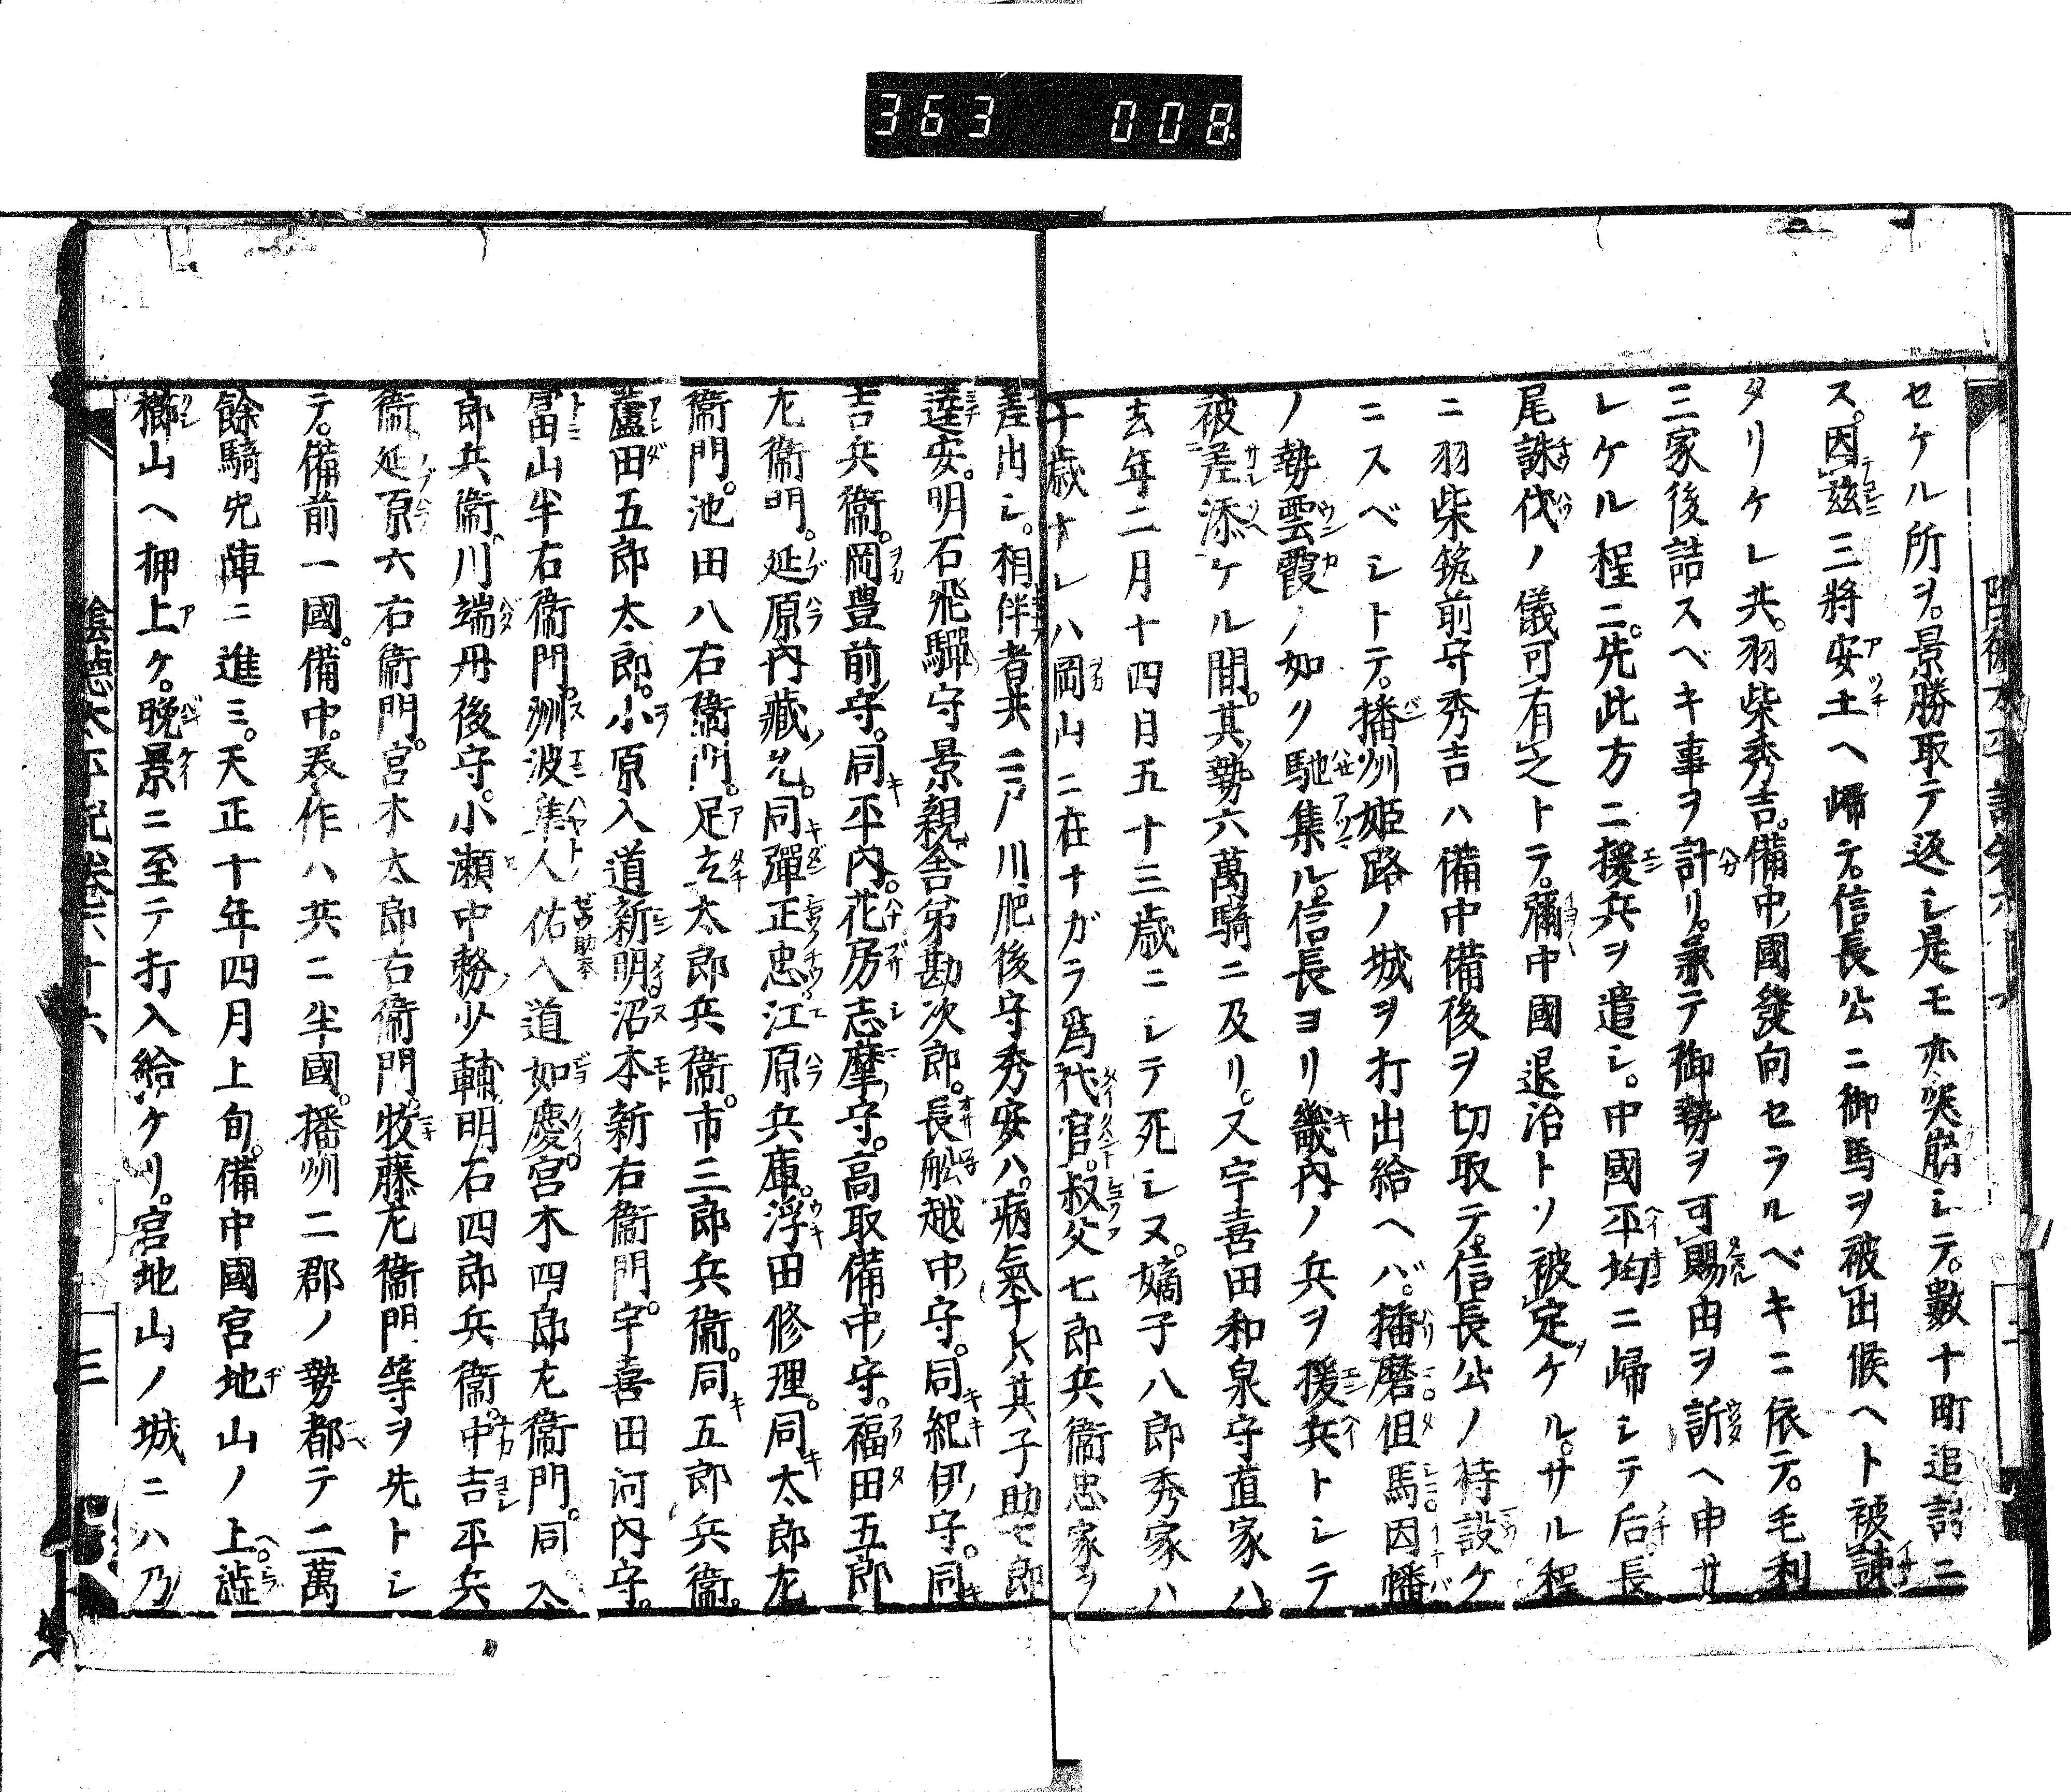 363 008
セケル所ヲ。景勝取テ返シ是モ亦突崩シテ。數十町追討ニ
ス。因茲三將安土ヘ歸テ。信長公ニ御馬ヲ被出候ヘト被諌
タリケレ共。羽柴秀吉。備中國發向セラルベキニ依テ。毛利
三家後詰スベキ事ヲ計リ。兼テ御勢ヲ可賜由ヲ訴ヘ申サ
レケル程ニ。先此方ニ援兵ヲ遣シ。中國平均ニ歸シテ后長
尾誅伐ノ儀可有之トテ。彌中國退治トソ被定ケル。サル程
ニ羽柴筑前守秀吉ハ備中備後ヲ切取テ。信長公ノ待設ケ
ニスベシトテ。播州姫路ノ城ヲ打出給ヘバ。播磨但馬因幡
ノ勢雲霞ノ如ク馳集ル。信長ヨリ畿内ノ兵ヲ援兵トシテ
被差添ケル間。其勢六萬騎ニ及リ。又宇喜田和泉守直家ハ。
去年二月十四日五十三歳ニシテ死シヌ。嫡子八郎秀家ハ
十歳ナレハ岡山ニ在ナガラ爲代官。叔父七郎兵衞忠家ヲ
差出シ。相伴者共ニ戸川肥後守秀安ハ。病氣ナレハ其子助七郎
達安。明石飛驒守景親舍弟勘次郎。長舩越中守。同紀伊守。同
吉兵衞。岡豊前守。同平内。花房志摩守。高取備中守。福田五郎
左衞明。延原内藏允。同彈正忠。江原兵庫。浮田修理。同太郎左
衞門。池田八右衞門。足立太郎兵衞。市三郎兵衞。同五郎兵衞。
蘆田五郎太郎。小原入道新明。沼本新右衞門。宇喜田河内守。
富山半右衞門。洲波隼人佑入道如慶。宮木四郎左衞門。同入
郎兵衞。川端丹後守。小瀬中務少輔。明石四郎兵衞。中吉平兵
衞延原六右衞門。宮木太郎右衞門。牧藤左衞門等ヲ先トシ
テ。備前一國。備中。美作ハ共ニ半國。播州二郡ノ勢都テ二萬
餘騎先陣ニ進ミ。天正十年四月上旬。備中國宮地山ノ上澁
櫛山ヘ押上ケ。晩景ニ至テ打入給ケリ。宮地山ノ城ニハ乃
陰德太平記卷六十六
三